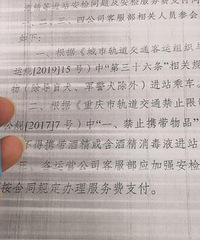 一、二、三、四公司客服部相关人员参会
如下：
一、根据《城市轨道交通客运组织与
运规[2019]15号）中“第三十六条”相关规
物（除导盲犬、军警犬除外）进站乘车
二、根据《重庆市轨道交通禁止限
公规[2017]7号）中“一、禁止携带物品”
不得携带酒精或含酒精消毒液进站
各运营公司客服部应加强安检
按合同规定办理服务费支付。